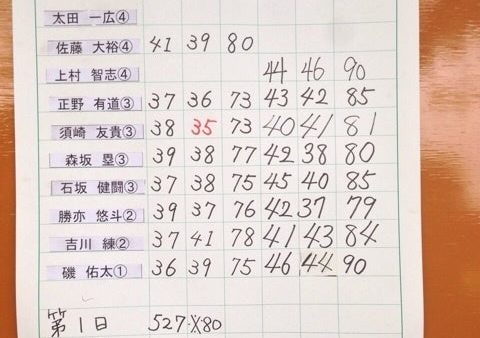 太田 一広④
佐藤 大裕④ 41 39 80
上村 智志④ 44 46 90
正野 有道③ 37 36 73 43 42 85
須崎 友貴③ 38 35 73 40 41 81
森坂 塁③ 39 38 77 42 38 80
石坂 健闘③ 37 38 75 45 40 85
勝亦 悠斗② 39 37 76 42 37 79
吉川 練② 37 41 78 41 43 84
磯 佑太① 36 39 75 46 44 90
第1日 527